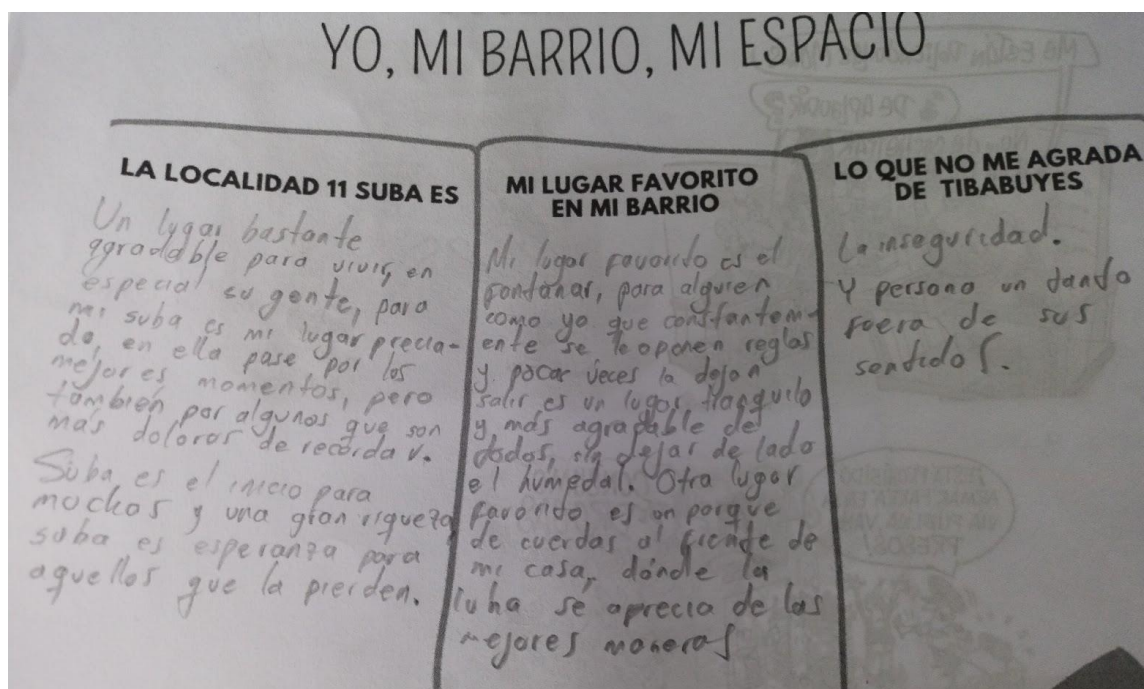 YO, MI BARRIO, MI ESPACIO
LA LOCALIDAD 11 SUBA ES
Un lugar bastante
agradable para vivir, en
especial su gente, para
mi suba es mi lugar precia-
do, en ella pase por los
mejores momentos, pero
también por algunos que son
más doloros de recordar.
Suba es el inicio para
muchos y una gran riqueza
suba es esperanza para
aquellos que la pierden.
MI LUGAR FAVORITO
EN MI BARRIO
Mi lugar favorito es el
fontanar, para alguien
como yo que constantem-
ente se le oponen reglas
y pocas veces la dejan
salir es un lugar tranquilo
y más agradable de
todos, sin dejar de lado
el humedal. Otro lugar
favorito es un porque
de cuerdas al frente de
mi casa, dónde la
luna se aprecia de las
mejores maneras
LO QUE NO ME AGRADA
DE TIBABUYES
La inseguridad.
Y persona un
fuera de sus
sentidos.